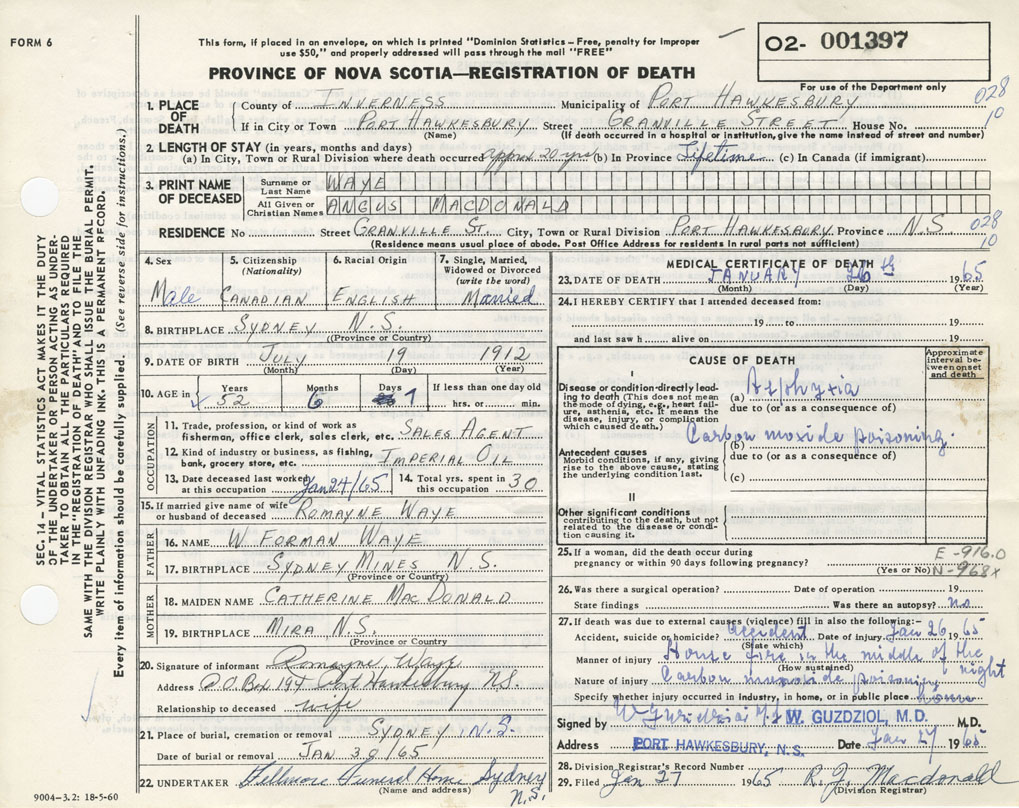 FORM 6
This form, if placed in an envelope, on which is printed "Dominion Statistics – Free, penalty for improper
use $50," and properly addressed will pass through the mail "FREE"
PROVINCE OF NOVA SCOTIA—REGISTRATION OF DEATH
O2- 001397
For use of the Department only
028
10
1. PLACE OF DEATH
County of INVERNESS Municipality of PORT HAWKESBURY
If in City or Town PORT HAWKESBURY Street GRANVILLE STREET House No.
(Name) (If death occurred in a hospital or institution, give name instead of street and number)
2. LENGTH OF STAY (in years, months and days)
(a) In City, Town or Rural Division where death occurred approx. 20 yrs (b) In Province Lifetime (c) In Canada (if immigrant)
3. PRINT NAME OF DECEASED
Surname or Last Name WAYE
All Given or Christian Names ANGUS MACDONALD
RESIDENCE No Street GRANVILLE ST. City, Town or Rural Division PORT HAWKESBURY Province N.S
(Residence means usual place of abode. Post Office Address for residents in rural parts not sufficient)
028
10
4. Sex Male
5. Citizenship (Nationality) CANADIAN
6. Racial Origin ENGLISH
7. Single, Married, Widowed or Divorced (write the word) Married
8. BIRTHPLACE SYDNEY N.S.
(Province or Country)
9. DATE OF BIRTH JULY 19 1912
(Month) (Day) (Year)
10. AGE in Years 52 Months 6 Days 7 If less than one day old hrs. or min.
OCCUPATION
11. Trade, profession, or kind of work as
fisherman, office clerk, sales clerk, etc. SALES AGENT
12. Kind of industry or business, as fishing,
bank, grocery store, etc. IMPERIAL OIL
13. Date deceased last worked at this occupation Jan 24/65
14. Total yrs. spent in this occupation 30
15. If married give name of wife
or husband of deceased ROMAYNE WAYE
FATHER
16. NAME W FORMAN WAYE
17. BIRTHPLACE SYDNEY MINES N.S.
(Province or Country)
MOTHER
18. MAIDEN NAME CATHERINE MACDONALD
19. BIRTHPLACE MIRA N.S.
(Province or Country)
20. Signature of informant Romayne Waye
Address P.O Box 194 Port Hawkesbury N.S.
Relationship to deceased wife
21. Place of burial, cremation or removal SYDNEY N.S.
Date of burial or removal JAN 30/65
22. UNDERTAKER Fillmore Funeral Home Sydney N.S.
(Name and address)
MEDICAL CERTIFICATE OF DEATH
23. DATE OF DEATH JANUARY 26th 1965
(Month) (Day) (Year)
24. I HEREBY CERTIFY that I attended deceased from:
19 to 19
and last saw h alive on 19
CAUSE OF DEATH
Approximate interval between onset and death
I
Disease or condition directly leading to death (This does not mean the mode of dying, e.g., heart failure, asthenia, etc. It means the disease, injury, or complication which caused death.)
(a) Asphyxia
due to (or as a consequence of)
(b) Carbon moxide poisoning.
Antecedent causes
Morbid conditions, if any, giving rise to the above cause, stating the underlying condition last.
due to (or as a consequence of)
(c)
II
Other significant conditions
contributing to the death, but not related to the disease or condition causing it.
25. If a woman, did the death occur during
pregnancy or within 90 days following pregnancy?
(Yes or No)
E-916.0
N-968x
26. Was there a surgical operation? Date of operation 19
State findings Was there an autopsy? no
27. If death was due to external causes (violence) fill in also the following:–
Accident, suicide or homicide? accident Date of injury Jan 26 1965
(State which)
Manner of injury House fire in the middle of the night
(How sustained)
Nature of injury Carbon monoxide poisoning
Specify whether injury occurred in industry, in home, or in public place home
Signed by W. GUZDZIOL, M.D. M.D.
Address PORT HAWKESBURY, N.S. Date Jan 27 1965
28. Division Registrar's Record Number
29. Filed Jan 27 1965 R. J. Macdonald
(Division Registrar)
SEC. 14 – VITAL STATISTICS ACT MAKES IT THE DUTY
OF THE UNDERTAKER OR PERSON ACTING AS UNDER-
TAKER TO OBTAIN ALL THE PARTICULARS REQUIRED
IN THE "REGISTRATION OF DEATH" AND TO FILE THE
SAME WITH THE DIVISION REGISTRAR WHO SHALL ISSUE THE BURIAL PERMIT.
WRITE PLAINLY WITH UNFADING INK. THIS IS A PERMANENT RECORD.
Every item of information should be carefully supplied. (See reverse side for instructions.)
9004–3.2: 18-5-60